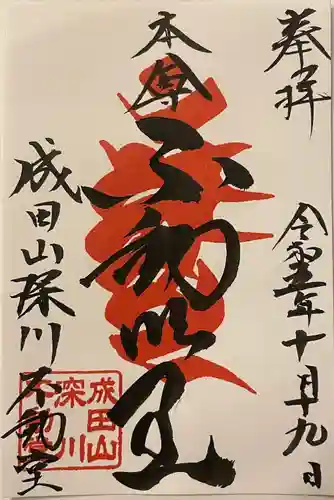 奉拝
令和五年十月十九日
本尊
不動明王
成田山深川不動堂
成田山
深川